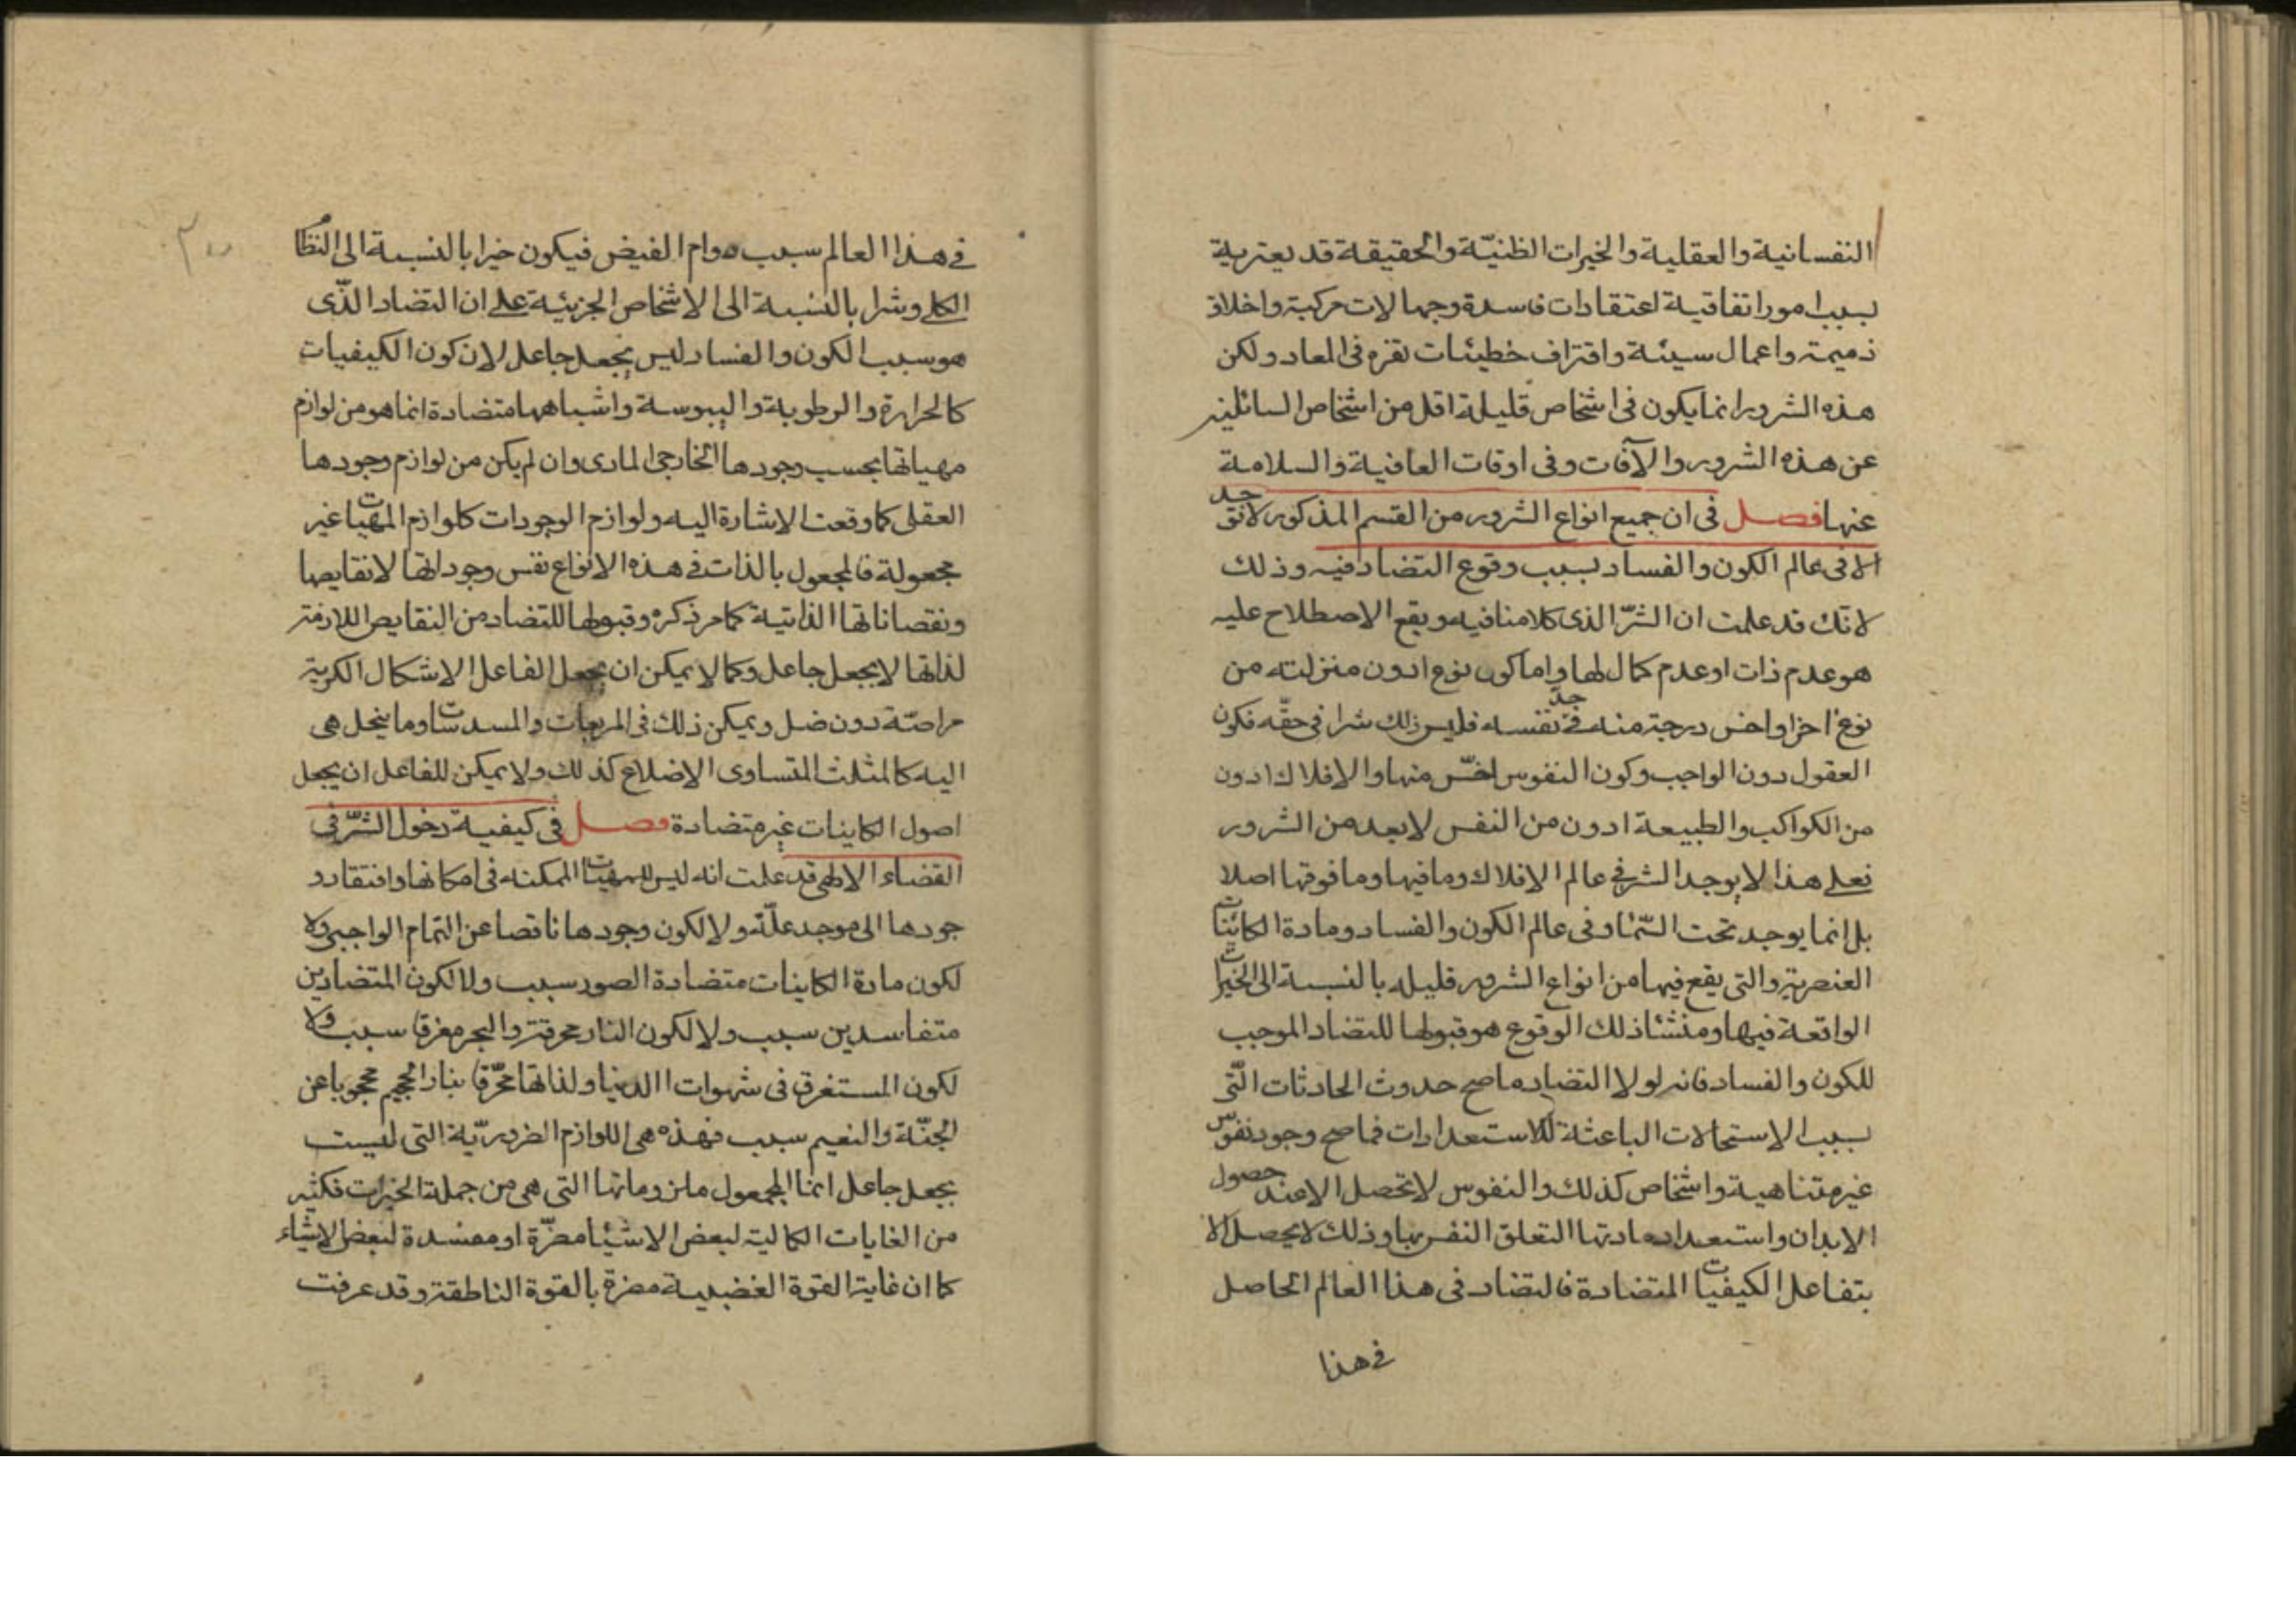 النفسانية والعقلية والخيرات الظنيّة والحقيقة قد يعتريه
بسبب امور اتفاقية اعتقادات فاسدة وجهالات مركبة واخلاق
ذميمة واعمال سيئة واقتراف خطيئات تضره فى المعاد ولكن
هذه الشرور انما يكون فى اشخاص قليلة اقل من اشخاص السالمين
عن هذه الشرور والآفات وفى اوقات العافية والسلامة
عنها فصل فى ان جميع انواع الشرور من القسم المذكور لا توجد
الا فى عالم الكون والفساد بسبب وقوع التضاد فيه وذلك
لانك قد علمت ان الشرّ الذى كلامنا فيه ويقع الاصطلاح عليه
هو عدم ذات او عدم كمال لها واما كون نوع ادون منزلته من
نوع اخر او اخس درجة منه فى حد نفسه فليس ذلك شرا فى حقّه فكون
العقول دون الواجب وكون النفوس اخسّ منها والافلاك ادون
من الكواكب والطبيعة ادون من النفس لا يعد من الشرور
فعلى هذا لا يوجد الشر فى عالم الافلاك وما فيها وما فوقها اصلا
بل انما يوجد تحت السّماء وفى عالم الكون والفساد ومادة الكائنات
العنصرية والتى يقع فيها من انواع الشرور قليله بالنسبة الى الخيرات
الواقعة فيها ومنشأ ذلك الوقوع هو قبولها للتضاد الموجب
للكون والفساد فانه لولا التضاد ما صح حدوث الحادثات الّتى
بسبب الاستحالات الباعثة للاستعدادات فما صح وجود نفوس
غير متناهية واشخاص كذلك والنفوس لا تحصل الا عند حصول
الابدان واستعداد مادتها التعلق النفس بها وذلك لا يحصل الا
بتفاعل الكيفيات المتضادة فالتضاد فى هذا العالم الحاصل
فى هذا
فى هذا العالم سبب دوام الفيض فيكون خيرا بالنسبة الى النظام
الكلى وشرا بالنسبة الى الاشخاص الجزئية على ان التضاد الذّى
هو سبب الكون والفساد ليس بجعل جاعل لان كون الكيفيات
كالحرارة والرطوبة واليبوسة واشباهها متضادة انما هو من لوازم
مهياتها بحسب وجودها الخارجى المادى وان لم يكن من لوازم وجودها
العقلى كما وقعت الاشارة اليه ولوازم الوجودات كلوازم المهيات غير
مجعولة فالمجعول بالذات فى هذه الانواع نفس وجوداتها لا نقايصها
ونقصاناتها الذاتية كما مر ذكره وقبولها للتضاد من النقايص اللازمة
لذاتها لا بجعل جاعل وكما لا يمكن ان يجعل الفاعل الاشكال الكرية
مراصّة دون ضل ويمكن ذلك فى المربعات والمسدسات وما ينحل هى
اليه كالمثلث المتساوى الاضلاع كذلك ولا يمكن للفاعل ان يجعل
اصول الكاينات غير متضادة فصل فى كيفية دخول الشرّ فى
القضاء الالهى قد علمت انه ليس للمهيات الممكنه فى امكانها وافتقار و
جودها الى موجد علّة ولا لكون وجودها ناقصا عن التمام الواجبى ولا
لكون مادة الكاينات متضادة الصور سبب ولا لكون المتضادين
متفاسدين سبب ولا لكون النار محرقة والبحر مغرقا سبب ولا
لكون المستغرق فى شهوات الدنيا ولذاتها محرّقا بنار الجحيم محجوبا عن
الجنّة والنعيم سبب فهذه هى اللوازم الضروريّة التى ليست
بجعل جاعل انما المجعول ملزوماتها التى هى من جملة الخيرات فكثير
من الغايات الكمالية لبعض الاشيا مضرّة او مفسدة لبعض الاشياء
كما ان غاية القوة الغضبية مضرة بالقوة الناطقة وقد عرفت